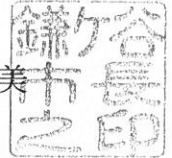 美
鎌ケ谷
市長
之印